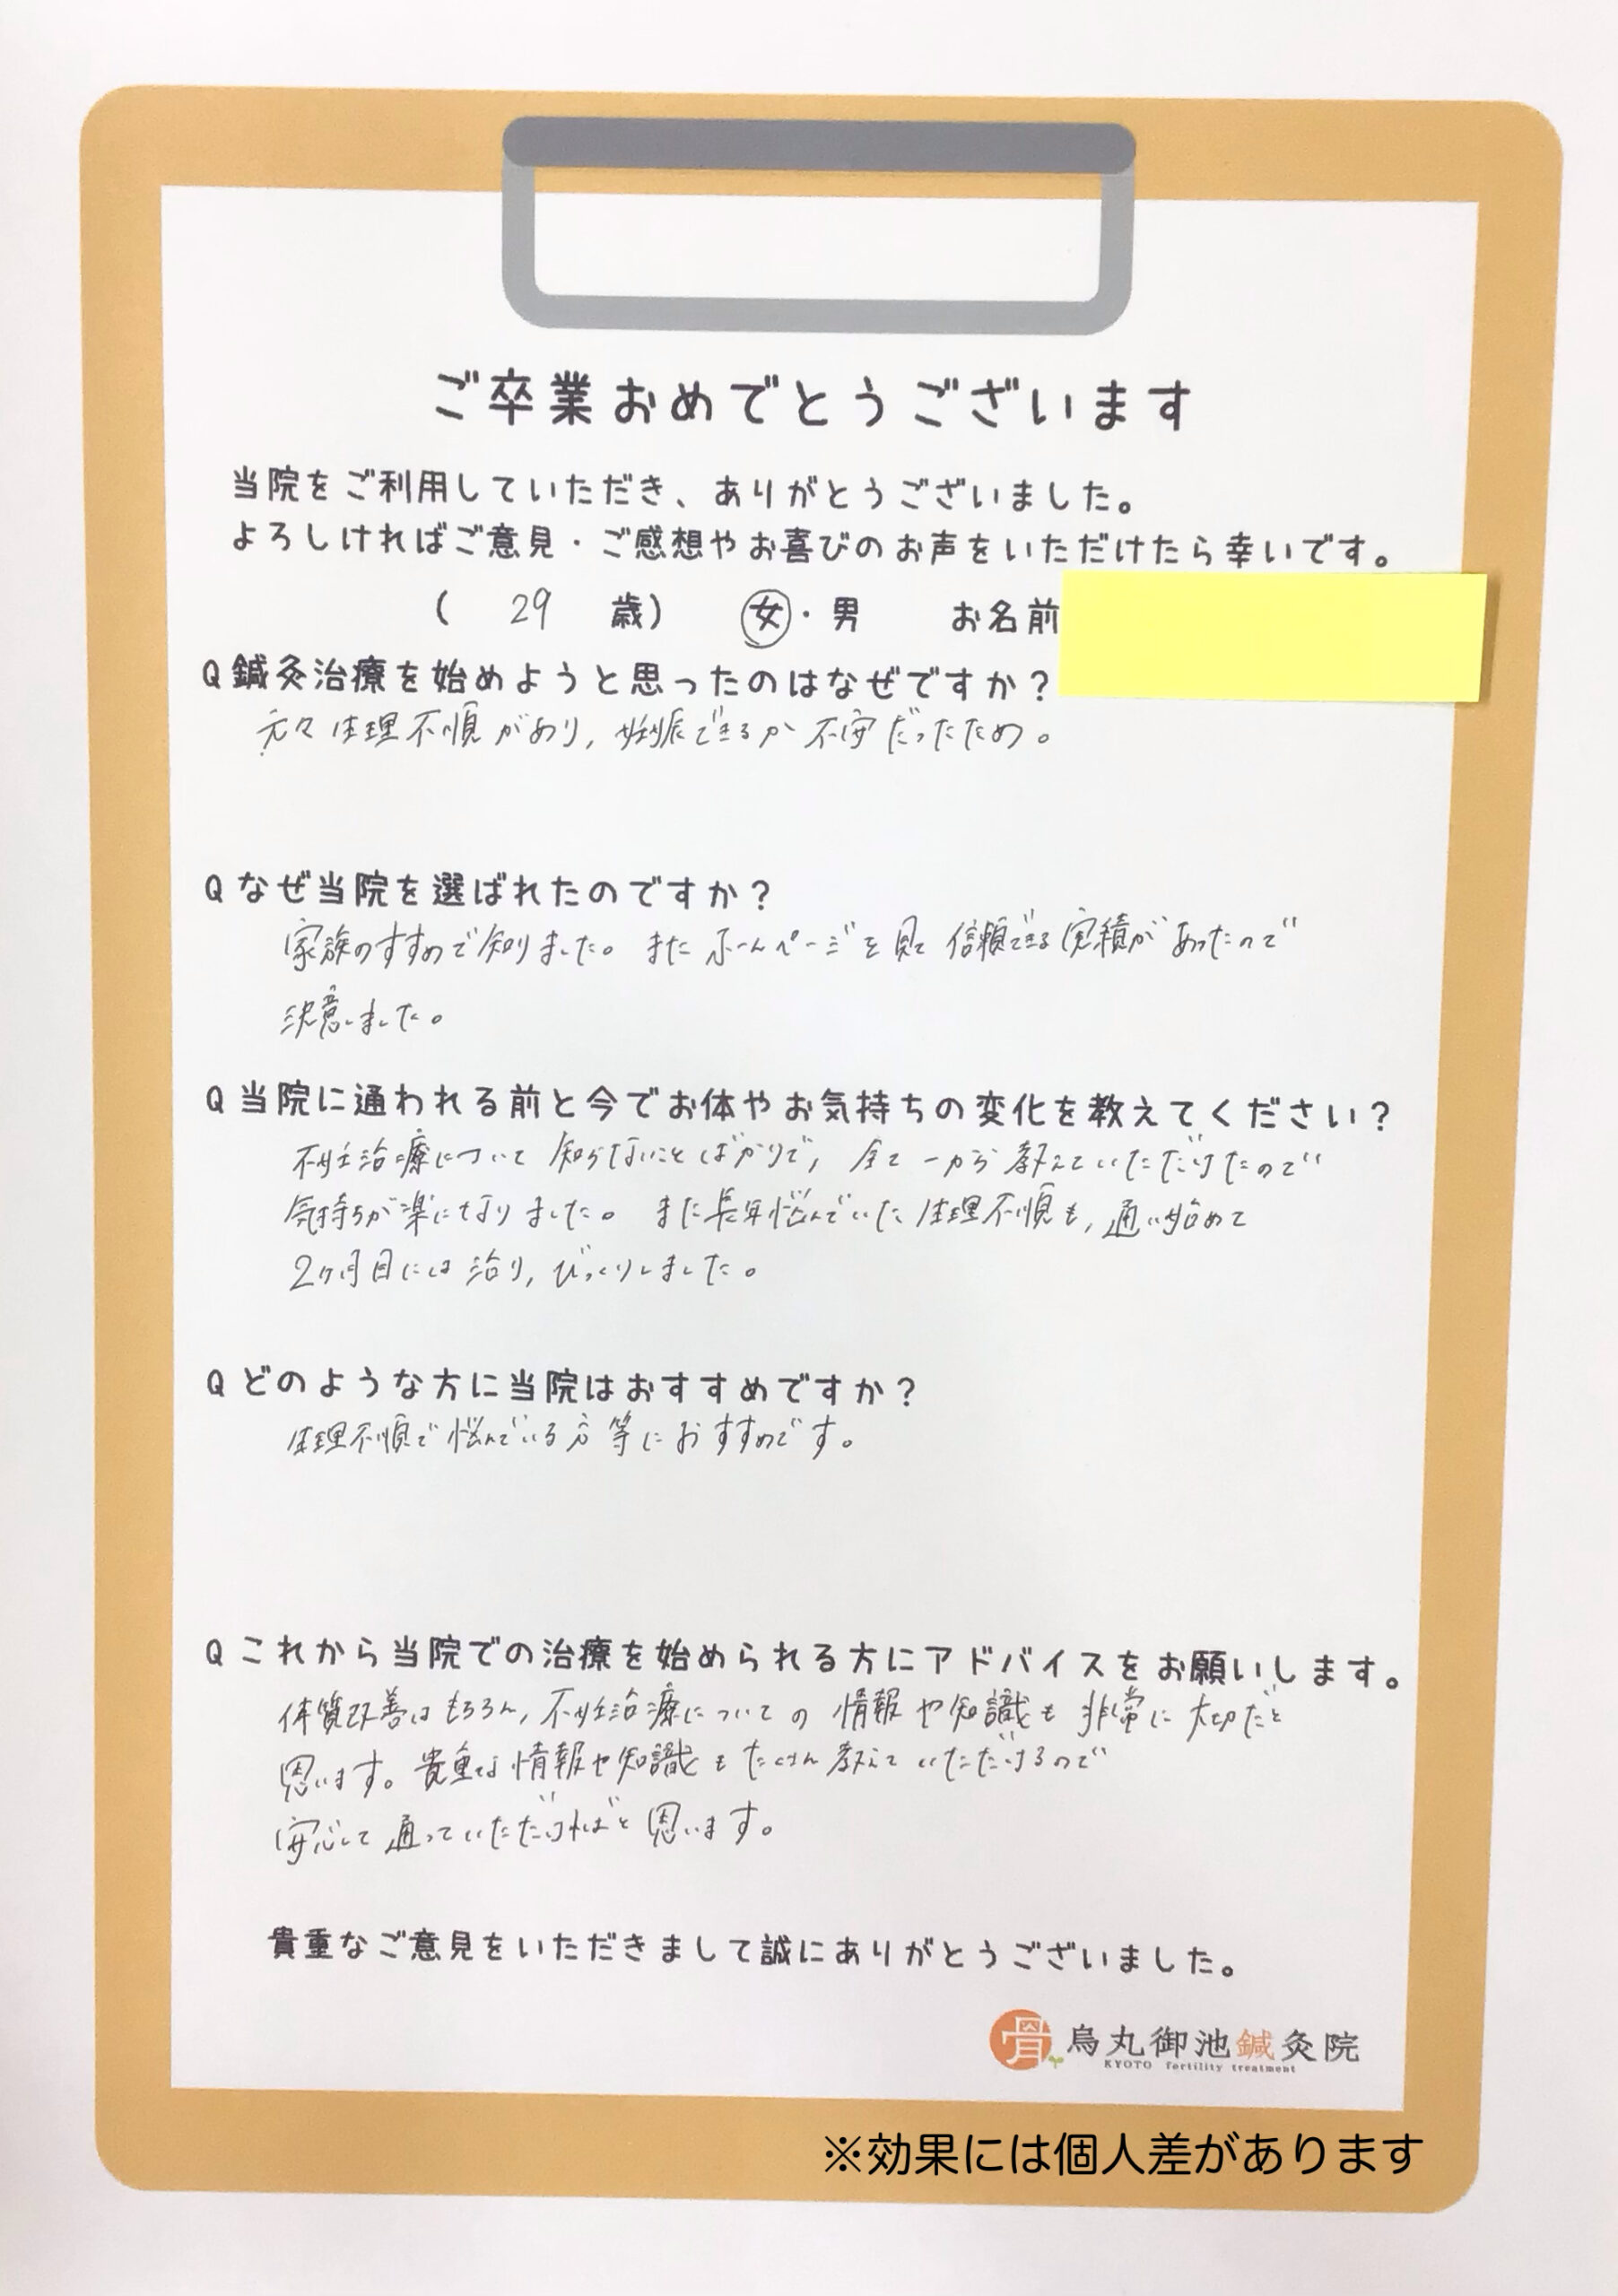 ご卒業おめでとうございます
当院をご利用していただき、ありがとうございました。
よろしければご意見・ご感想やお喜びのお声をいただけたら幸いです。
( 29 歳) 女・男 お名前
Q鍼灸治療を始めようと思ったのはなぜですか?
元々生理不順があり,妊娠できるか不安だったため。
Qなぜ当院を選ばれたのですか?
家族のすすめで知りました。またホームページを見て信頼できる実績があったので
決意しました。
Q当院に通われる前と今でお体やお気持ちの変化を教えてください?
不妊治療について知らないことばかりで,全て一から教えていただけたので
気持ちが楽になりました。また長年悩んでいた生理不順も,通い始めて
2ヶ月目には治り,びっくりしました。
Qどのような方に当院はおすすめですか?
生理不順で悩んでいる方等におすすめです。
Qこれから当院での治療を始められる方にアドバイスをお願いします。
体質改善はもちろん,不妊治療についての情報や知識も非常に大切だと
思います。貴重な情報や知識もたくさん教えていただけるので
安心して通っていただければと思います。
貴重なご意見をいただきまして誠にありがとうございました。
骨 烏丸御池鍼灸院
KYOTO fertility treatment
※効果には個人差があります